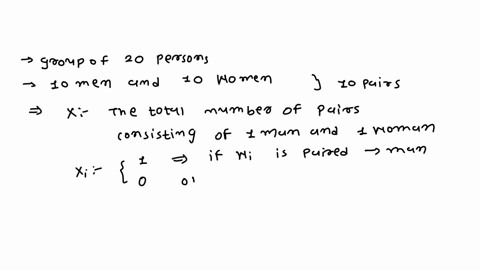 → group of 20 persons
→ 10 men and 10 women } 10 pairs
⇒ X:- The total number of pairs
consisting of 1 man and 1 woman
Xi:- { 1 ⇒ if Wi is paired → man
0